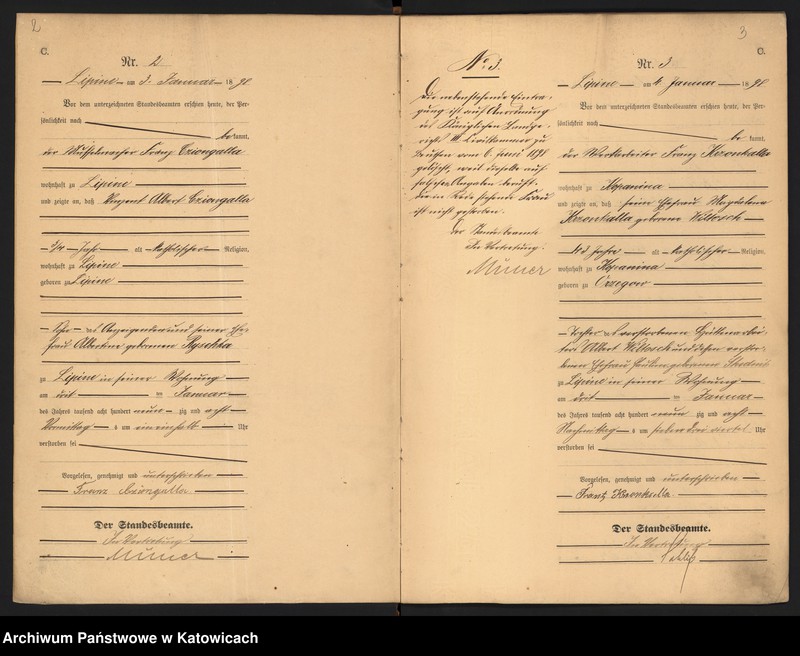 2
C.
Nr. 2
Lipine am 3. Januar 1898
Vor dem unterzeichneten Standesbeamten erschien heute, der Per-
sönlichkeit nach
be kannt,
der Franz Cziongalla
wohnhaft zu Lipine
und zeigte an, daß Vinzent Albert Cziongalla
Jahr alt katholischer Religion,
wohnhaft zu Lipine
geboren zu Lipine
Sohn des Anzeigenden und seiner Ehe-
frau Albertine geborenen
zu Lipine in seiner Wohnung
am drit ten Januar
des Jahres tausend acht hundert neun zig und acht
Vormittag s um ein einhalb Uhr
verstorben sei
Vorgelesen, genehmigt und unterschrieben
Franz Cziongalla
Der Standesbeamte.
In Vertretung
No. 3.
Die nebenstehende Eintra-
gung ist auf Anordnung
des Königlichen Landge-
richts Civilkammer zu
Beuthen vom 6. Juni 1898
gelöscht, weil dieselbe auf
falschen Angaben beruht,
die in Rede stehende Frau
ist nicht gestorben.
Der Standesbeamte
In Vertretung.
3
C.
Nr. 3
Lipine am 4. Januar 1898
Vor dem unterzeichneten Standesbeamten erschien heute, der Per-
sönlichkeit nach
be kannt,
der Franz
wohnhaft zu Kopanina
und zeigte an, daß seine Ehefrau Magdalena
geborene
Jahre alt katholischer Religion,
wohnhaft zu Kopanina
geboren zu Orzegow
Tochter des verstorbenen Hüttenarbei-
ters Albert und dessen verstor-
benen Ehefrau geborenen
zu Lipine in seiner Wohnung
am drit ten Januar
des Jahres tausend acht hundert neun zig und acht
Nachmittag s um sieben drei viertel Uhr
verstorben sei
Vorgelesen, genehmigt und unterschrieben
Franz
Der Standesbeamte.
In Vertretung
Archiwum Państwowe w Katowicach